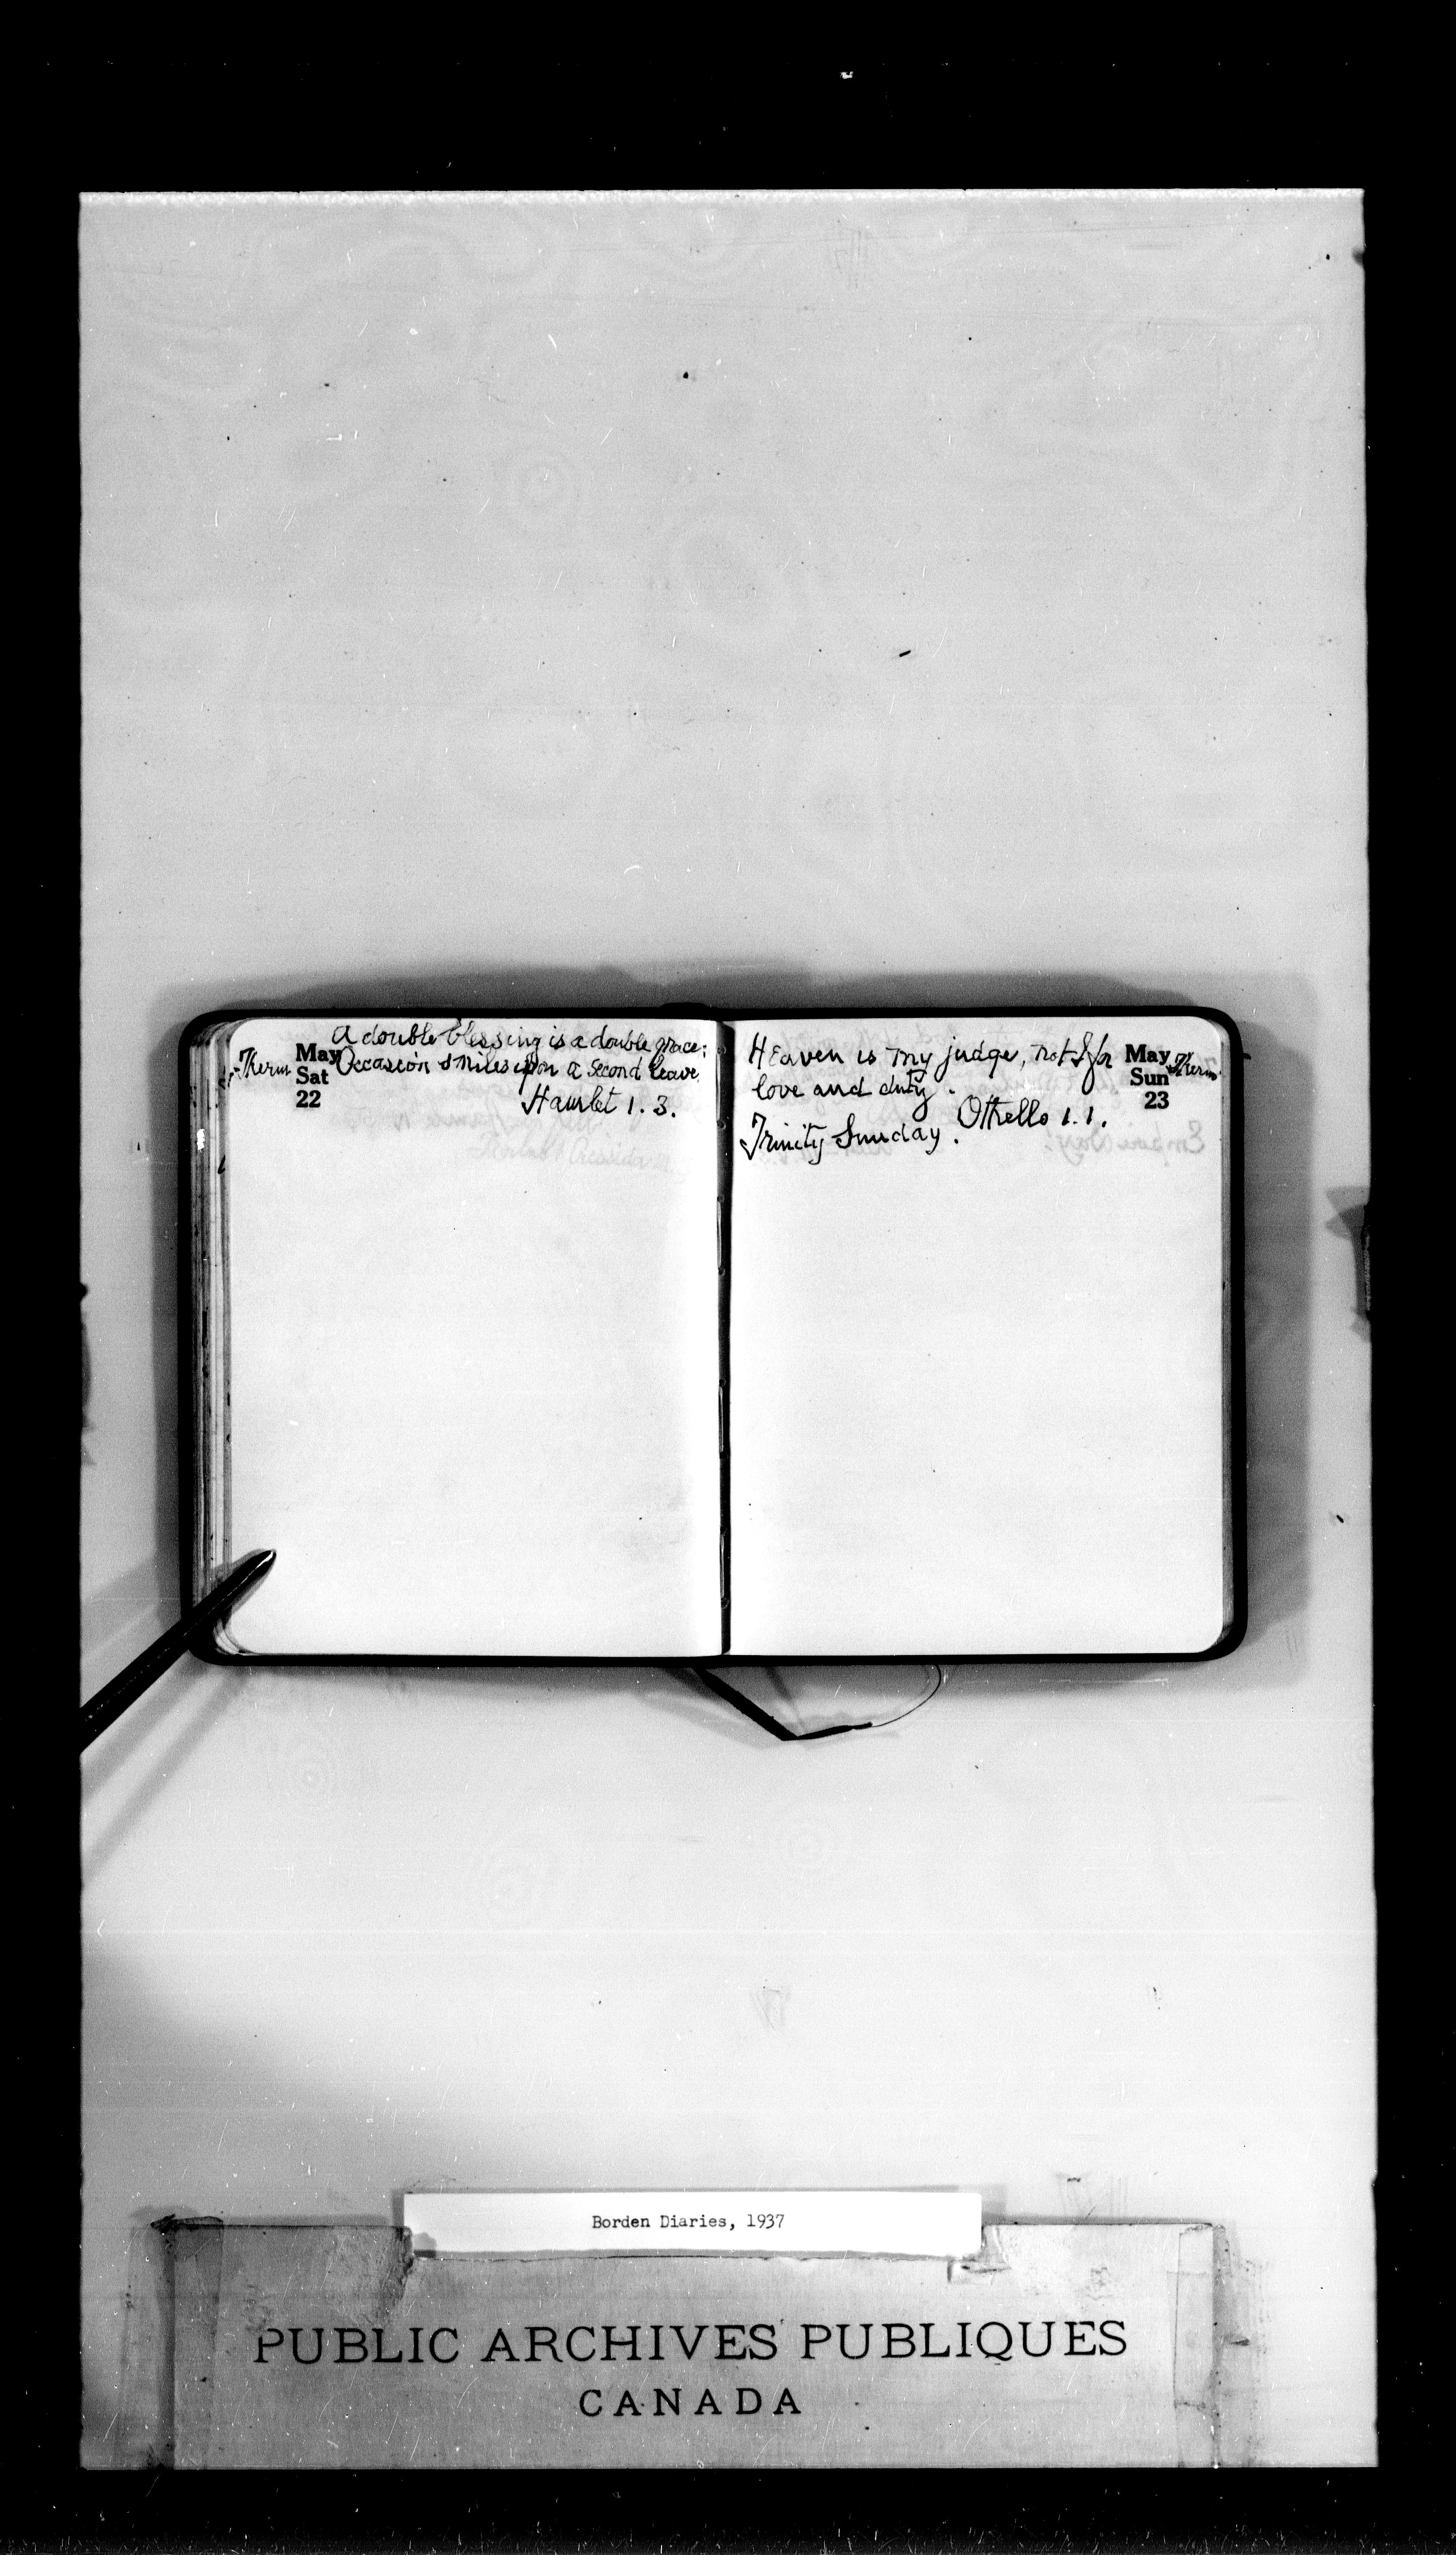 A double blessing is a double grace;
Therm May Occasion smiles upon a second leave
Sat
22 Hamlet 1. 3.
Heaven is my judge, not I for May Therm
love and duty. Sun
Othello 1. 1. 23
Trinity Sunday.
Borden Diaries, 1937
PUBLIC ARCHIVES PUBLIQUES
CANADA